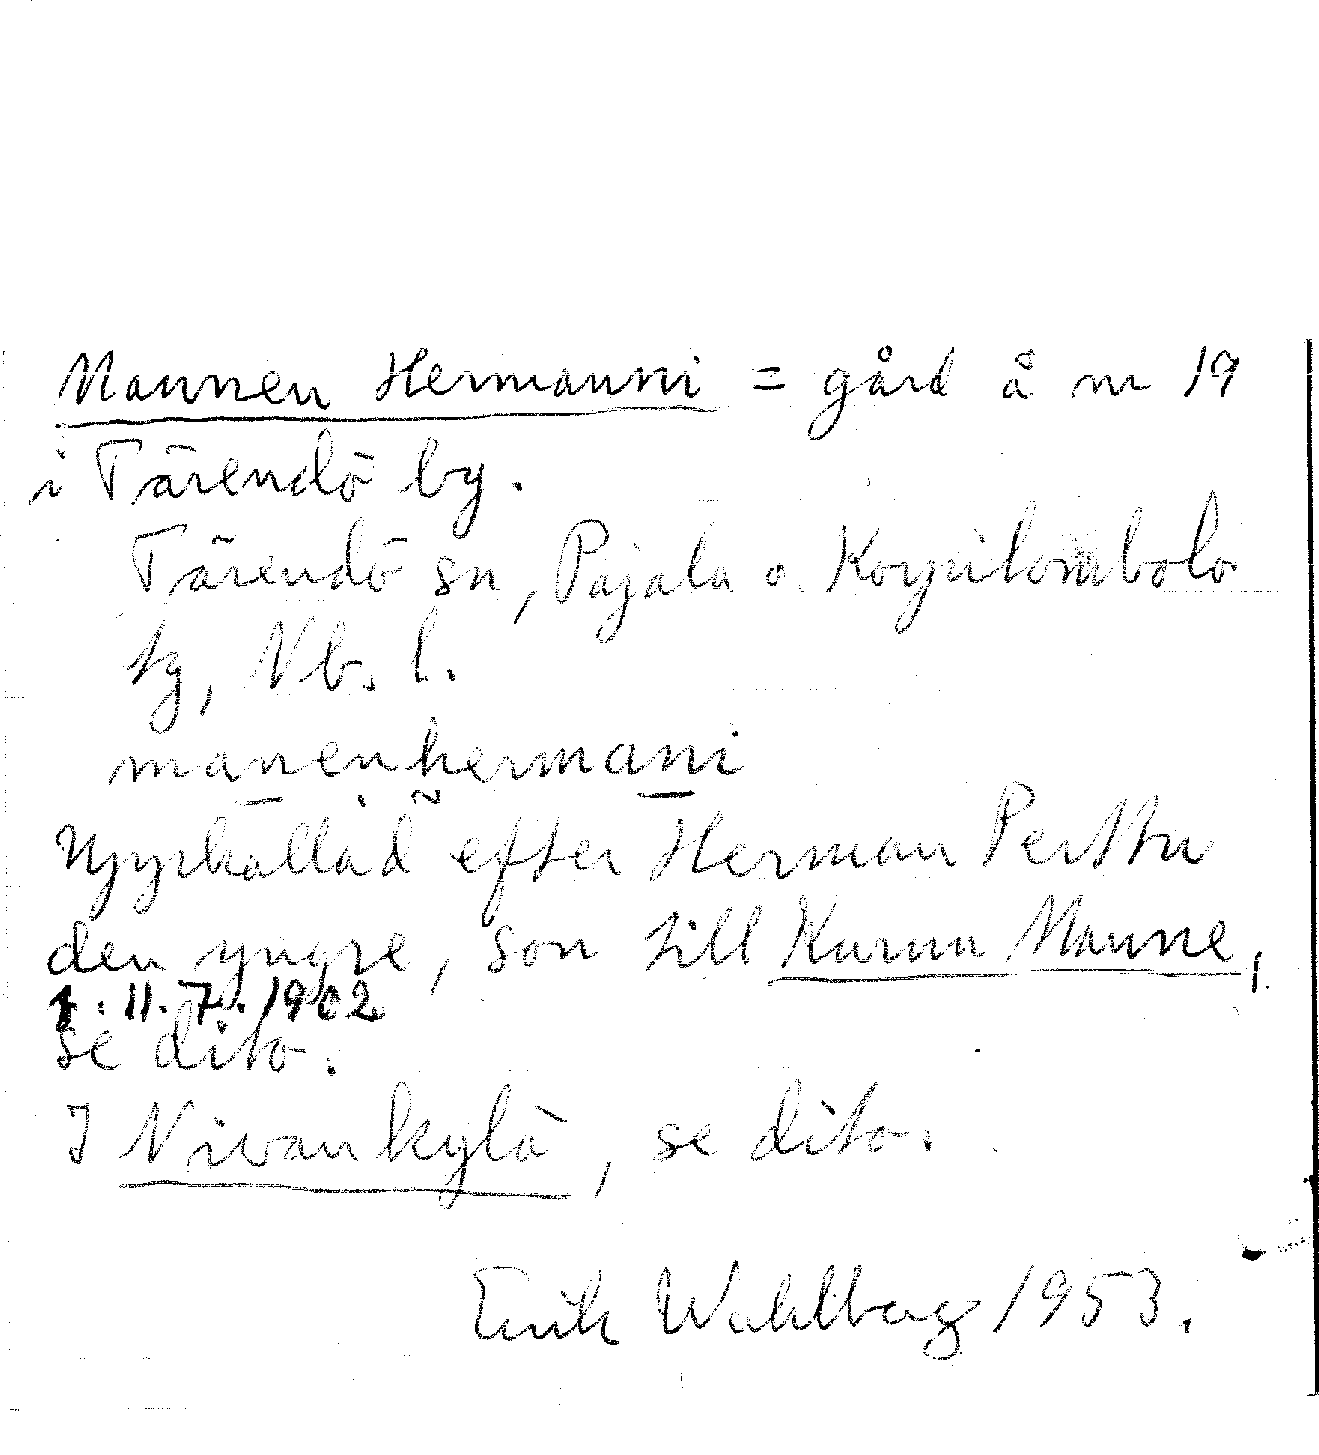 Mannen Hermanni = gård å nr 19
i Tärendö by.
Tärendö sn, Pajala o. Korpilombolo
tg, Nb. l.
manenhermani
Uppkallad efter Herman Perttu
den yngre, son till Kurun Manne,
f. 11.7.1902
se dito.
I Nivankylä, se dito.
Erik Wahlberg 1953.